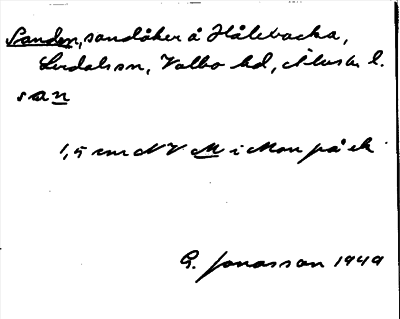 Sanden, sandåker å Hålebacka,
Lerdals sn, Valbo hd, Älvsb. l.
san
1,5 cm NV M i Mon på ek.
G. Jonasson 1949